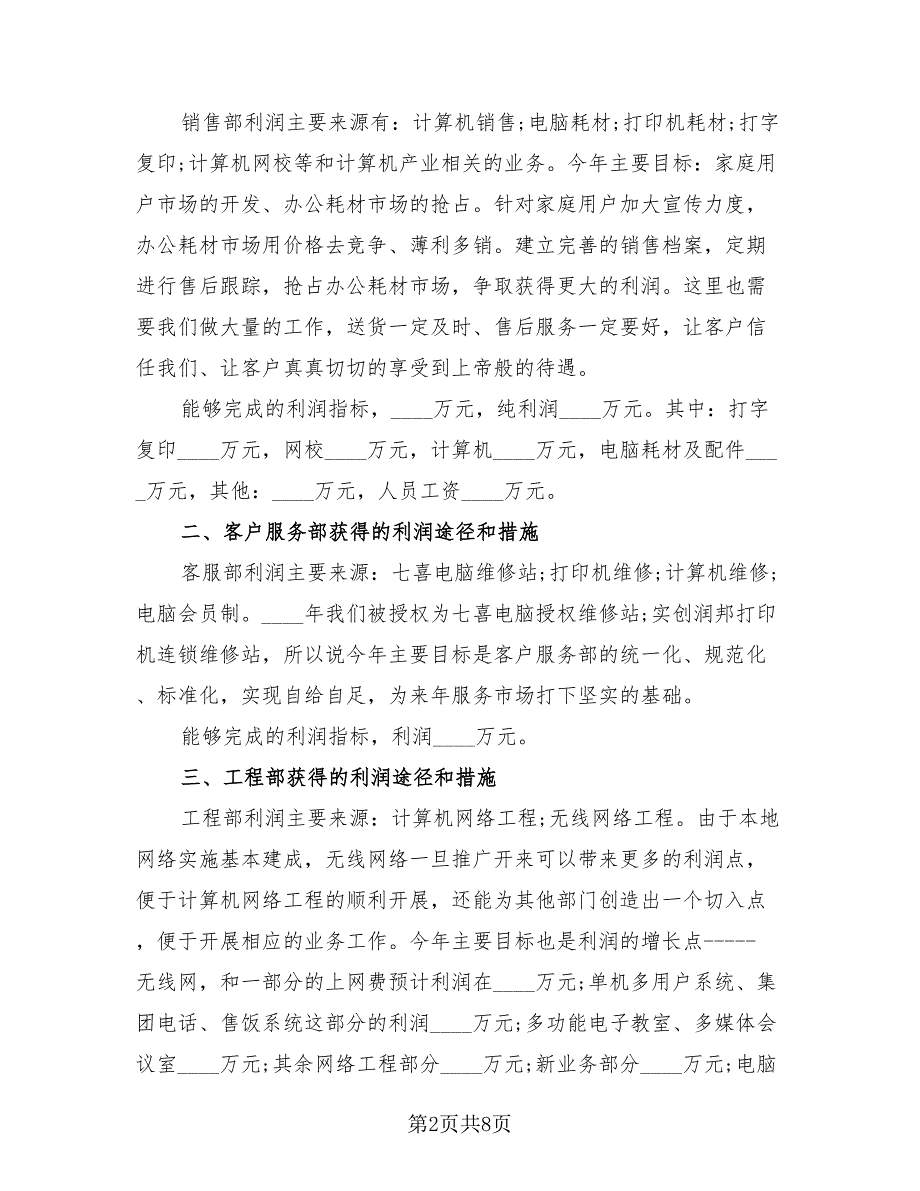 销售部利润主要来源有：计算机销售;电脑耗材;打印机耗材;打字
复印;计算机网校等和计算机产业相关的业务。今年主要目标：家庭用
户市场的开发、办公耗材市场的抢占。针对家庭用户加大宣传力度，
办公耗材市场用价格去竞争、薄利多销。建立完善的销售档案，定期
进行售后跟踪，抢占办公耗材市场，争取获得更大的利润。这里也需
要我们做大量的工作，送货一定及时、售后服务一定要好，让客户信
任我们、让客户真真切切的享受到上帝般的待遇。
能够完成的利润指标，____万元，纯利润____万元。其中：打字
复印____万元，网校____万元，计算机____万元，电脑耗材及配件___
_万元，其他：____万元，人员工资____万元。
二、客户服务部获得的利润途径和措施
客服部利润主要来源：七喜电脑维修站;打印机维修;计算机维修;
电脑会员制。____年我们被授权为七喜电脑授权维修站;实创润邦打印
机连锁维修站，所以说今年主要目标是客户服务部的统一化、规范化
、标准化，实现自给自足，为来年服务市场打下坚实的基础。
能够完成的利润指标，利润____万元。
三、工程部获得的利润途径和措施
工程部利润主要来源：计算机网络工程;无线网络工程。由于本地
网络实施基本建成，无线网络一旦推广开来可以带来更多的利润点，
便于计算机网络工程的顺利开展，还能为其他部门创造出一个切入点
，便于开展相应的业务工作。今年主要目标也是利润的增长点-----
无线网，和一部分的上网费预计利润在____万元;单机多用户系统、集
团电话、售饭系统这部分的利润____万元;多功能电子教室、多媒体会
议室____万元;其余网络工程部分____万元;新业务部分____万元;电脑
第2页共8页